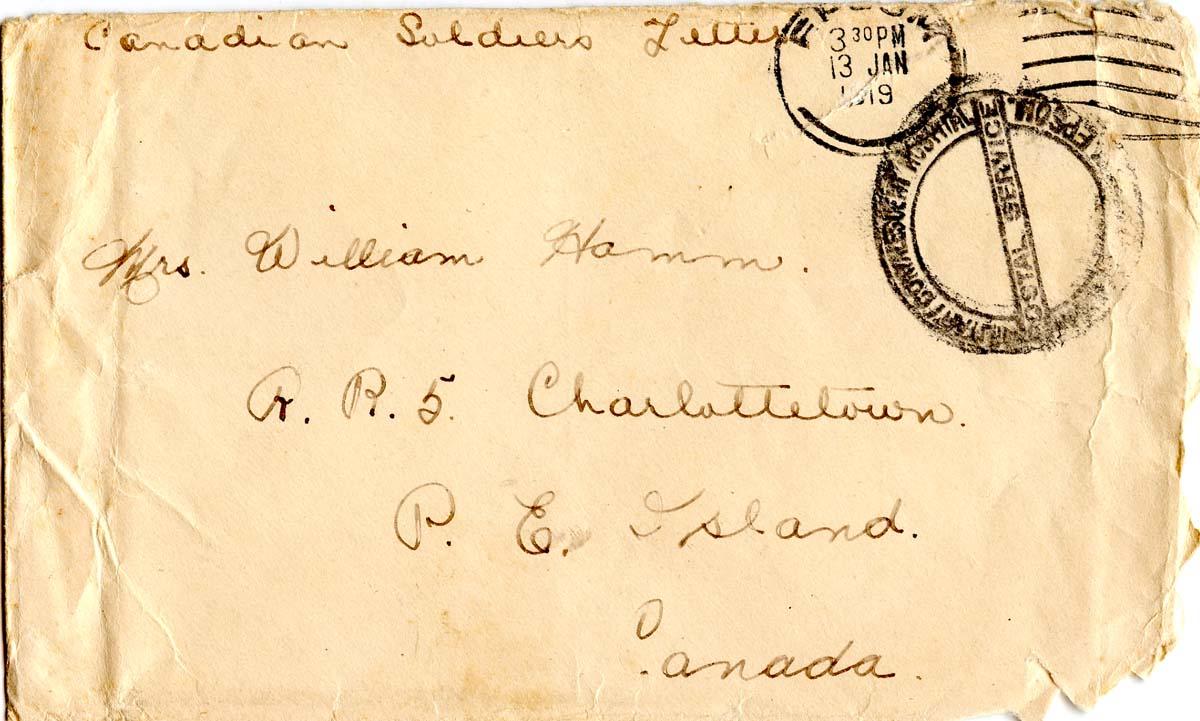 Canadian Soldiers Letter
EPSOM
3 30 PM
13 JAN
1919
MILITARY CONVALESCENT HOSPITAL
EPSOM.
POSTAL SERVICE
Mrs. William Hamm.
R. R. 5. Charlottetown.
P. E. Island.
Canada.